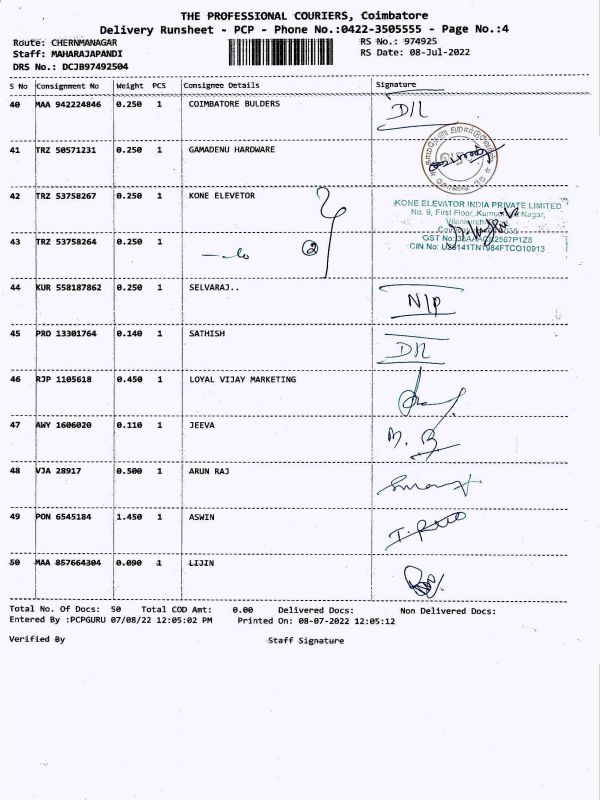 THE PROFESSIONAL COURIERS, Coimbatore
Delivery Runsheet - PCP - Phone No.:0422-3505555 - Page No.:4
Route: CHERNMANAGAR RS No.: 974925
Staff: MAHARAJAPANDI RS Date: 08-Jul-2022
DRS No.: DCJB97492504
S No Consignment No Weight PCS Consignee Details Signature
40 MAA 942224846 0.250 1 COIMBATORE BULDERS D/L
41 TRZ 50571231 0.250 1 GAMADENU HARDWARE
42 TRZ 53758267 0.250 1 KONE ELEVETOR
KONE ELEVATOR INDIA PRIVATE LIMITED
No. 9, First Floor, Nagar,
43 TRZ 53758264 0.250 1 2
44 KUR 558187862 0.250 1 SELVARAJ.. N/P
45 PRO 13301764 0.140 1 SATHISH D/L
46 RJP 1105618 0.450 1 LOYAL VIJAY MARKETING
47 AWY 1606020 0.110 1 JEEVA
48 VJA 28917 0.500 1 ARUN RAJ
49 PON 6545184 1.450 1 ASWIN
50 MAA 857664304 0.090 1 LIJIN
Total No. Of Docs: 50 Total COD Amt: 0.00 Delivered Docs: Non Delivered Docs:
Entered By :PCPGURU 07/08/22 12:05:02 PM Printed On: 08-07-2022 12:05:12
Verified By Staff Signature